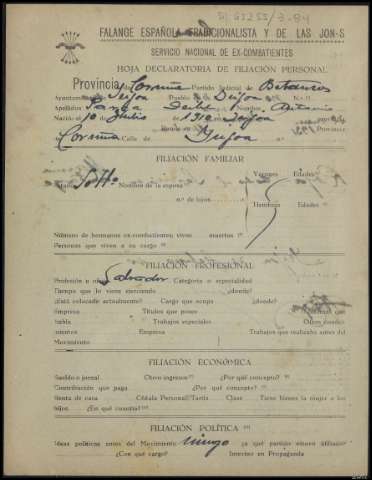 FALANGE ESPAÑOLA TRADICIONALISTA Y DE LAS JON-S
SERVICIO NACIONAL DE EX-COMBATIENTES
HOJA DECLARATORIA DE FILIACIÓN PERSONAL
Provincia Coruña Partido Judicial de Betanzos
Ayuntamiento Irijoa Pueblo Irijoa N.º
Apellidos Nombre Antonio
Nació el 10 Julio de 1910 Irijoa Provincia
Coruña Calle de Irijoa
FILIACIÓN FAMILIAR
Varones Edades
Estado Solto Nombre de la esposa
n.º de hijos
Hembras Edades
Número de hermanos ex-combatientes: vivos muertos
Personas que viven a su cargo
FILIACIÓN PROFESIONAL
Profesión u oficio Labrador Categoría o especialidad
Tiempo que lo viene ejerciendo ¿donde?
¿Está colocado actualmente? Cargo que ocupa ¿donde?
Empresa Títulos que posee
habla Trabajos especiales Otros
Empresa Trabajos que realizaba antes del
Movimiento
FILIACIÓN ECONÓMICA
Sueldo o jornal Otros ingresos ¿Por qué concepto?
Contribución que paga ¿Por qué concepto?
Renta de casa Cédula Personal/Tarifa Clase Tiene bienes la mujer o los
hijos ¿En qué cuantía?
FILIACIÓN POLÍTICA
Ideas políticas antes del Movimiento ningo ¿a qué partido estuvo afiliado?
¿Con qué cargo? Intervino en Propaganda